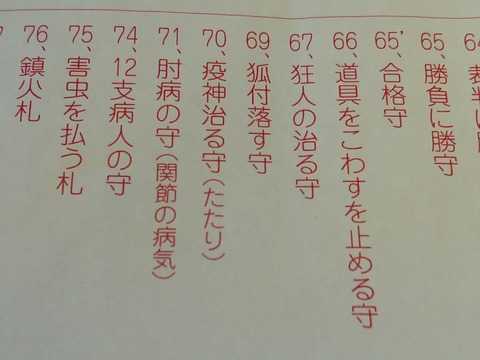 65、勝負に勝守
65’、合格守
66、道具をこわすを止める守
67、狂人の治る守
69、狐付落す守
70、疫神治る守(たたり)
71、肘病の守(関節の病気)
74、12支病人の守
75、害虫を払う札
76、鎮火札